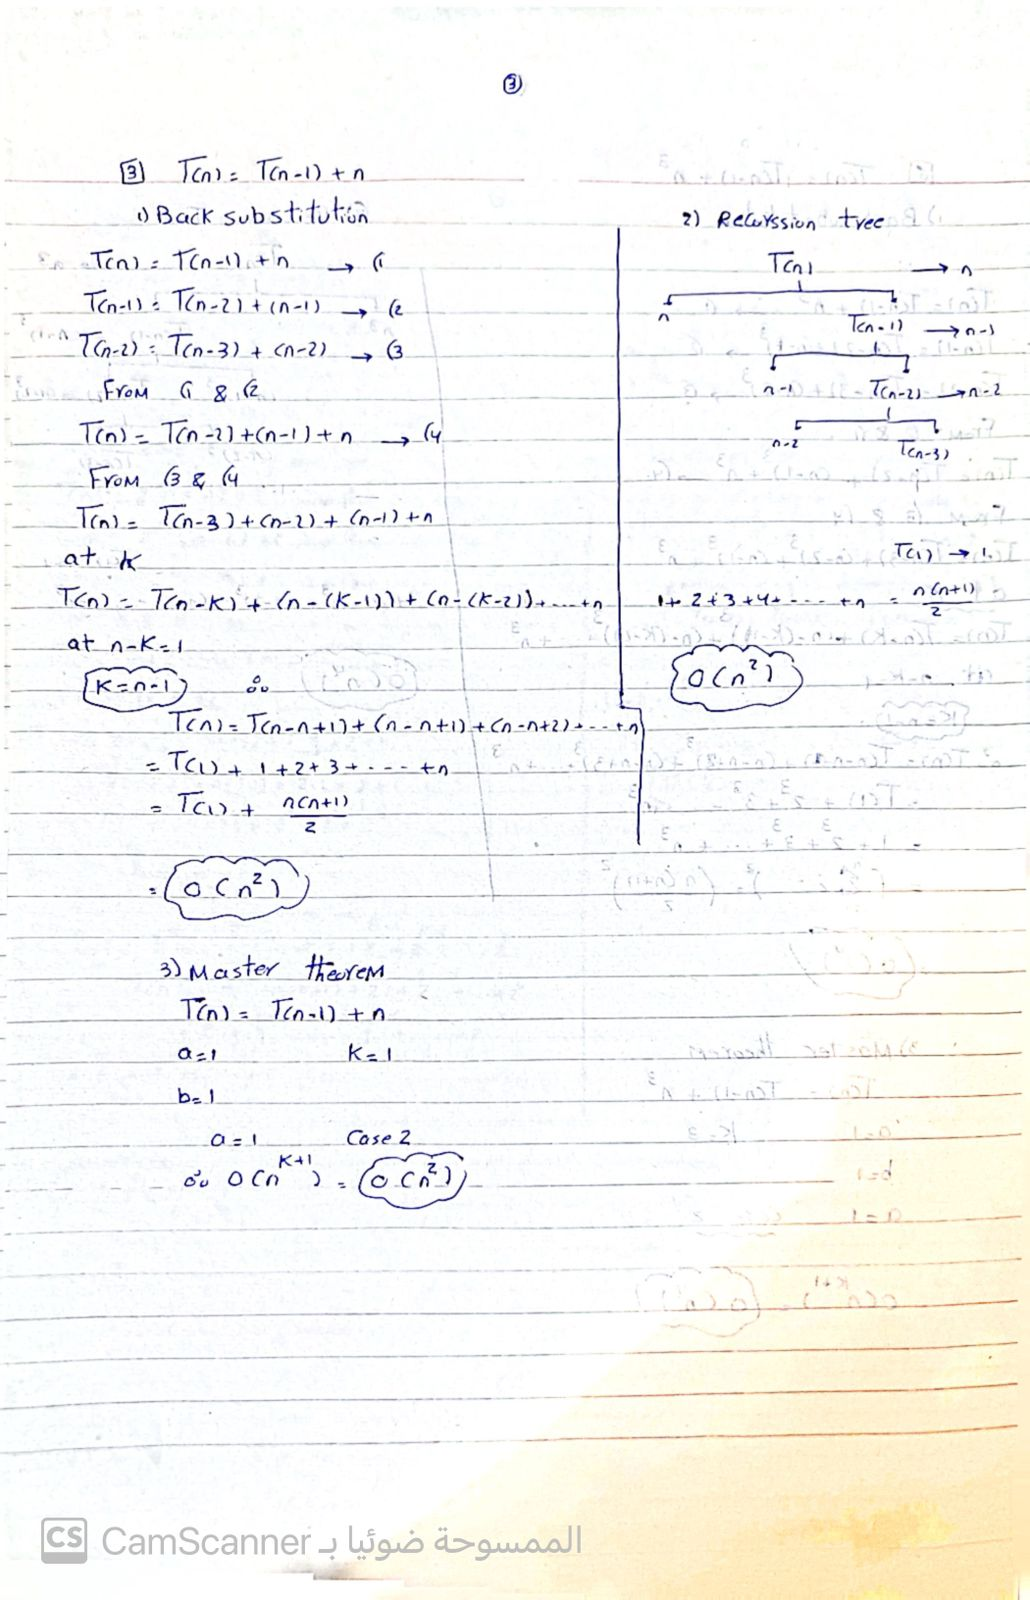 ③
[3] T(n) = T(n-1) + n
1) Back substitution
T(n) = T(n-1) + n → (1
T(n-1) = T(n-2) + (n-1) → (2
T(n-2) = T(n-3) + (n-2) → (3
From (1 & (2
T(n) = T(n-2) + (n-1) + n → (4
From (3 & (4
T(n) = T(n-3) + (n-2) + (n-1) + n
at K
T(n) = T(n-K) + (n-(K-1)) + (n-(K-2)) + .... + n
at n-K=1
K=n-1 ∴
T(n) = T(n-n+1) + (n-n+1) + (n-n+2) + ... + n
= T(1) + 1+2+3+ .... +n
= T(1) + n(n+1)/2
= O(n²)
2) Recurssion tree
T(n) → n
n T(n-1) → n-1
n-1 T(n-2) → n-2
n-2 T(n-3)
T(1) → 1
1+2+3+4+ .... +n = n(n+1)/2
O(n²)
3) Master theorem
T(n) = T(n-1) + n
a=1 K=1
b=1
a=1 Case 2
∴ O(n^K+1) = O(n²)
CS CamScanner الممسوحة ضوئيا بـ